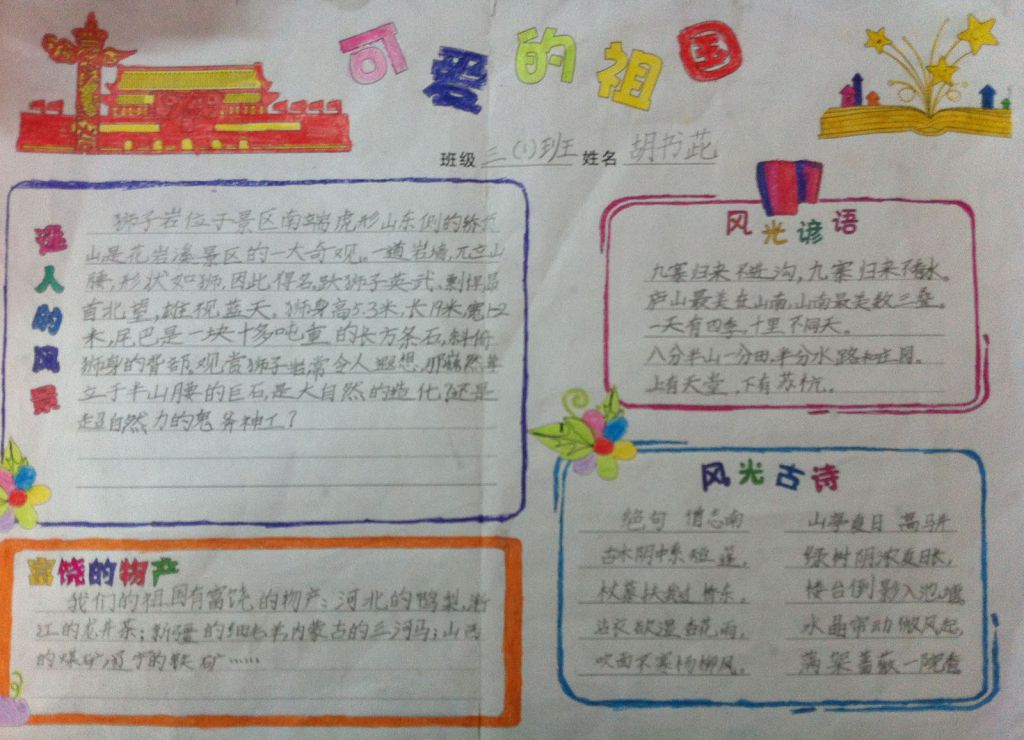 可爱的祖国
1949
班级 三(1)班 姓名 胡书
迷人的风景
狮子岩位于景区南端虎形山东侧的轿顶
山是花岩溪景区的一大奇观。一道岩墙,兀立山
腰,形状如狮,因此得名。狮子英武、剽悍,昂
首北望,雄视蓝天。狮身高5.3米,长7米,宽1.2
米,尾巴是一块十多吨重的长方条石,斜
狮身的背部,观赏狮子岩常令人遐想,那巍然
立于半山腰的巨石,是大自然的造化?还是
超自然力的鬼斧神工?
富饶的物产
我们的祖国有富饶的物产:河北的鸭梨,浙
江的龙井茶;新疆的细毛羊,内蒙古的三河马;山西
的煤矿,辽宁的铁矿……
风光谚语
九寨归来不进沟,九寨归来不看水。
庐山最美在山南,山南最美数三叠。
一天有四季,十里不同天。
八分半山一分田,半分水路和庄园。
上有天堂,下有苏杭。
风光古诗
绝句 僧志南
古木阴中系短蓬,
杖藜扶我过桥东。
沾衣欲湿杏花雨,
吹面不寒杨柳风。
山亭夏日 高骈
绿树阴浓夏日长,
楼台倒影入池塘
水晶帘动微风起,
满架蔷薇一院香